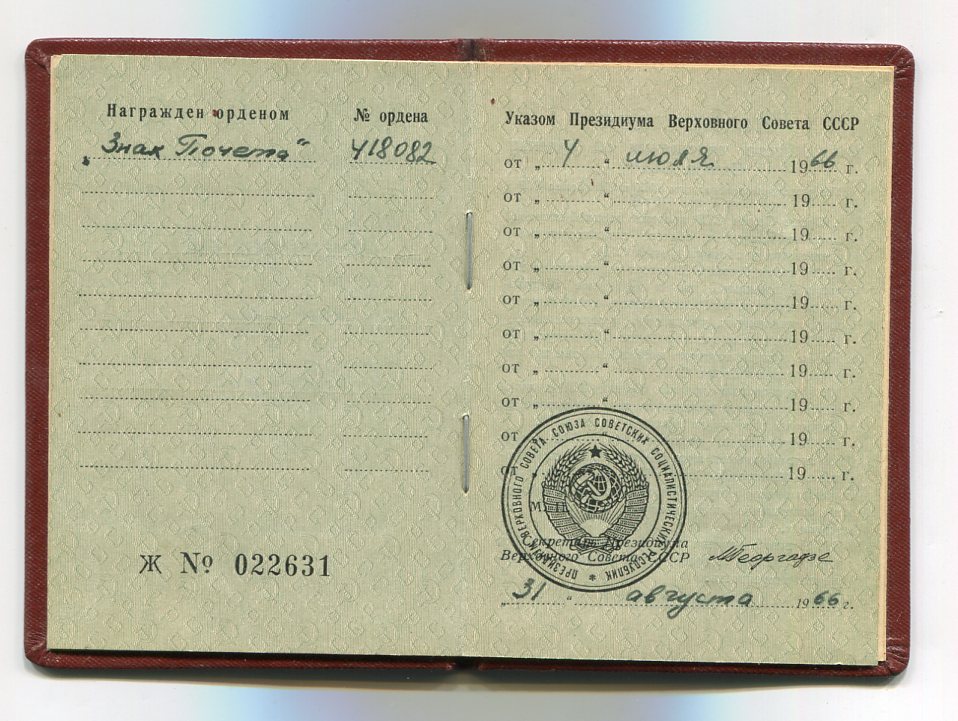 Награжден орденом
№ ордена
„Знак Почета“
418082
Ж № 022631
Указом Президиума Верховного Совета СССР
от „ 4 “ июля 1966 г.
от „ “ 19 г.
от „ “ 19 г.
от „ “ 19 г.
от „ “ 19 г.
от „ “ 19 г.
от „ “ 19 г.
от „ “ 19 г.
от „ “ 19 г.
от „ “ 19 г.
ПРЕЗИДИУМ ВЕРХОВНОГО СОВЕТА СОЮЗА СОВЕТСКИХ СОЦИАЛИСТИЧЕСКИХ РЕСПУБЛИК
М. П.
Секретарь Президиума
Верховного Совета СССР
МГеоргадзе
„ 31 “ августа 1966 г.